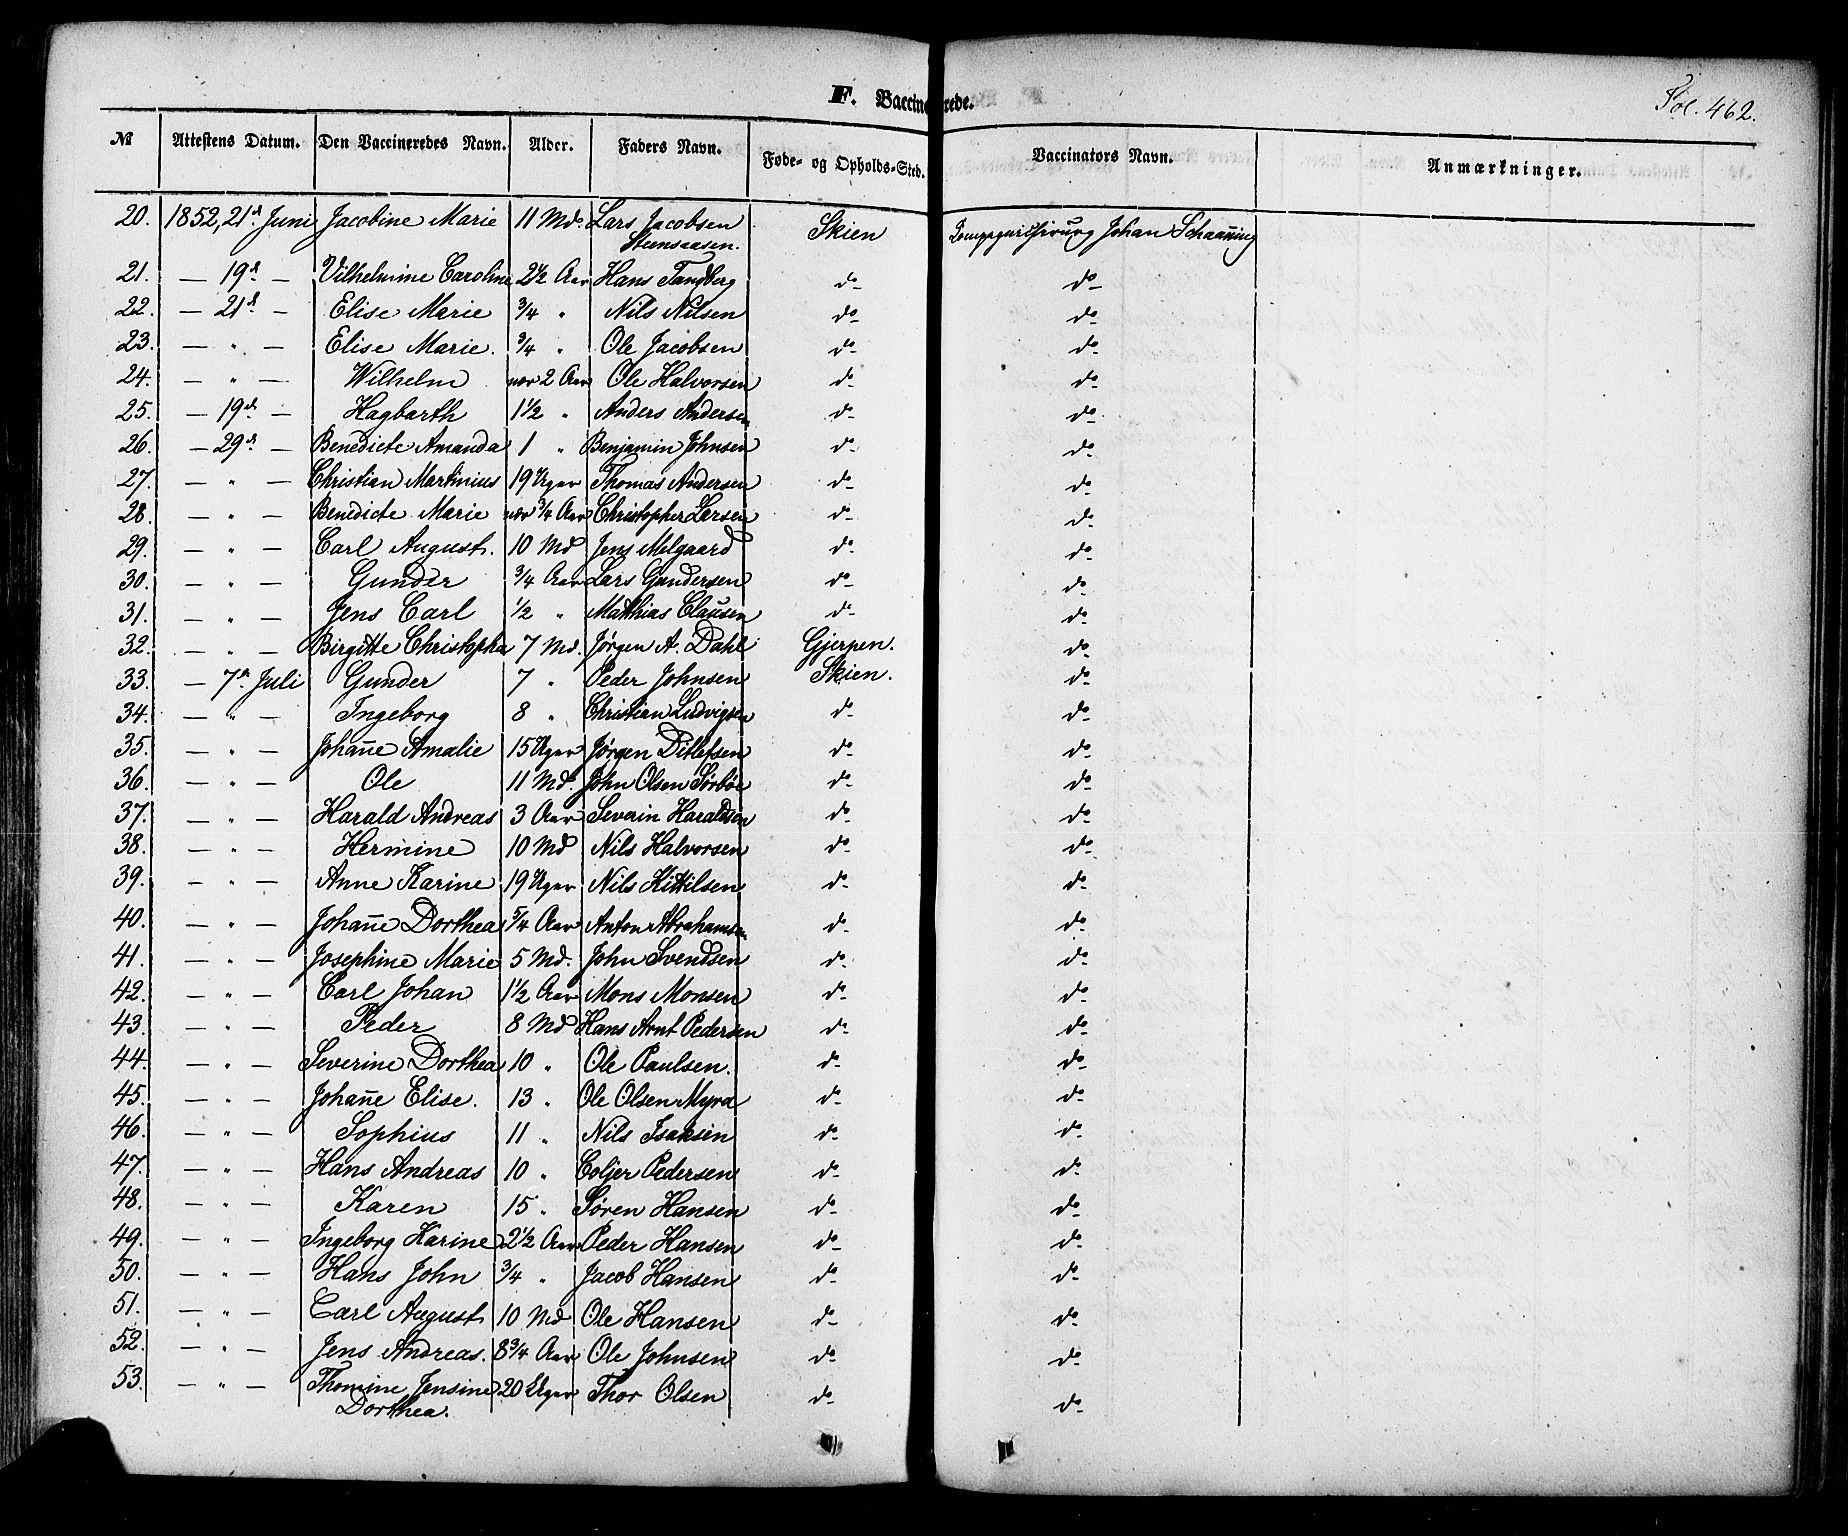 F. Vaccinerede.
Fol. 462.
№ Attestens Datum. Den Vaccineredes Navn. Alder. Faders Navn. Føde- og Opholds-Sted. Vaccinators Navn. Anmærkninger.
20. 1852, 21de Juni Jacobine Marie 11 Md. Lars Jacobsen Skien Kompagnichirurg Johan Schaaning
Steensaasen.
21. — 19d — Vilhelmine Caroline 2 1/2 Aar Hans Tandberg do do
22. — 21d — Elise Marie 3/4 " Nils Nilsen do do
23. — " — Elise Marie. 3/4 " Ole Jacobsen do do
24. — " — Wilhelm nær 2 Aar Ole Halvorsen do do
25. — 19d — Hagbarth 1 1/2 " Anders Andersen do do
26. — 29d — Benedicte Amanda 1 " Benjamin Johnsen do do
27. — " — Christian Martinius 19 Uger Thomas Andersen do do
28. — " — Benedicte Marie nær 3/4 Aar Christopher Larsen do do
29. — " — Carl August. 10 Md Jens Melgaard do do
30. — " — Gunder 3/4 Aar Lars Gundersen do do
31. — " — Jens Carl 1/2 " Matthias Clausen do do
32. — " — Birgitte Christopha 7 Md. Jørgen A. Dahl Gjerpen. do
33. — 7de Juli Gunder 7 " Peder Johnsen Skien. do
34. — " — Ingeborg 8 " Christian Ludvigsen do do
35. — " — Johañe Amalie 15 Uger Jørgen Ditlefsen do do
36. — " — Ole 11 Md. John Olsen Sørbøe do do
37. — " — Harald Andreas 3 Aar Severin Haraldsen do do
38. — " — Hermine 10 Md Nils Halvorsen do do
39. — " — Anne Karine 19 Uger Nils Kittilsen do do
40. — " — Johañe Dorthea 5/4 Aar Anton Abrahamsen do do
41. — " — Josephine Marie 5 Md. John Svendsen do do
42. — " — Carl Johan 1 1/2 Aar Mons Monsen do do
43. — " — Peder 8 Md Hans Arnt Pedersen do do
44. — " — Severine Dorthea 10 " Ole Paulsen. do do
45. — " — Johañe Elise. 13 " Ole Olsen Myra do do
46. — " — Sophius 11 " Nils Isaksen do do
47. — " — Hans Andreas 10 " Coljer Pedersen do do
48. — " — Karen 15 " Søren Hansen do do
49. — " — Ingeborg Karine 2 1/2 Aar Peder Hansen do do
50. — " — Hans John 3/4 " Jacob Hansen do do
51. — " — Carl August 10 Md Ole Hansen do do
52. — " — Jens Andreas. 8 3/4 Aar Ole Johnsen do do
53. — " — Thomine Jensine 20 Uger Thor Olsen do do
Dorthea.